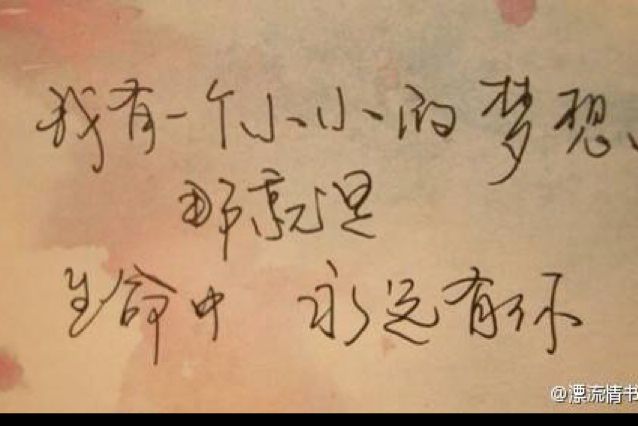 我有一个小小的梦想、
那就是
生命中 永远有你
@漂流情书